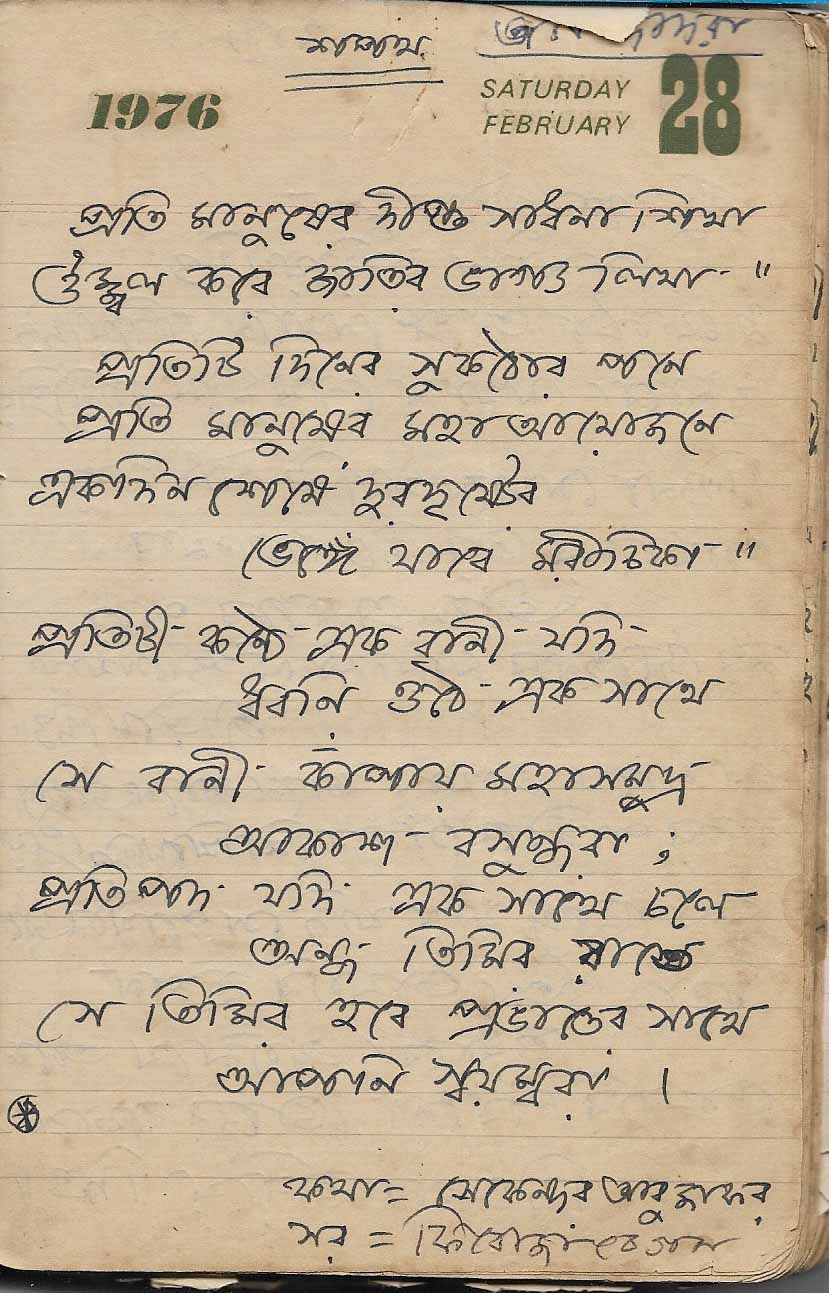 শপথ
1976
SATURDAY
FEBRUARY 28
প্রতি মানুষের দীপ্ত সাধনা শিখা
উজ্জ্বল করে জাতির ভাগ্য লিখা "
প্রতিটি দিনের সুকঠোর পনে
প্রতি মানুষের মহা আয়োজনে
একদিন শেষে দুরদৃষ্টের
ভেঙ্গে যাবে মরীচিকা "
প্রতিটী কন্ঠে এক বানী যদি
ধ্বনি ওঠে এক সাথে
সে বানী কাঁপায় মহাসমুদ্র
আকাশ বসুন্ধরা ;
প্রতি পদ যদি এক সাথে চলে
অন্ধ তিমির রাতে
সে তিমির হবে প্রভাতের সাথে
আপনি স্বয়ম্বরা ।
কথা = সেকেন্দর আবু জাফর
সুর = ফিরোজা বেগম